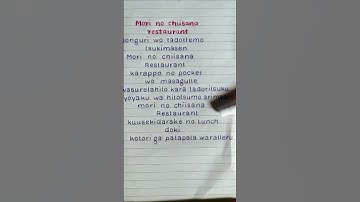 Mori no chiisana
restaurant
onguri wo tadottemo
tsukimasen
Mori no chiisana
Restaurant
karappo no pocket
wo masagutte
wasuretahito kara tadoritsuku
yoyaku wo hitotsumo
mori no chiisana
Restaurant
kuusekidarake no lunch
doki
kotori ga patapata